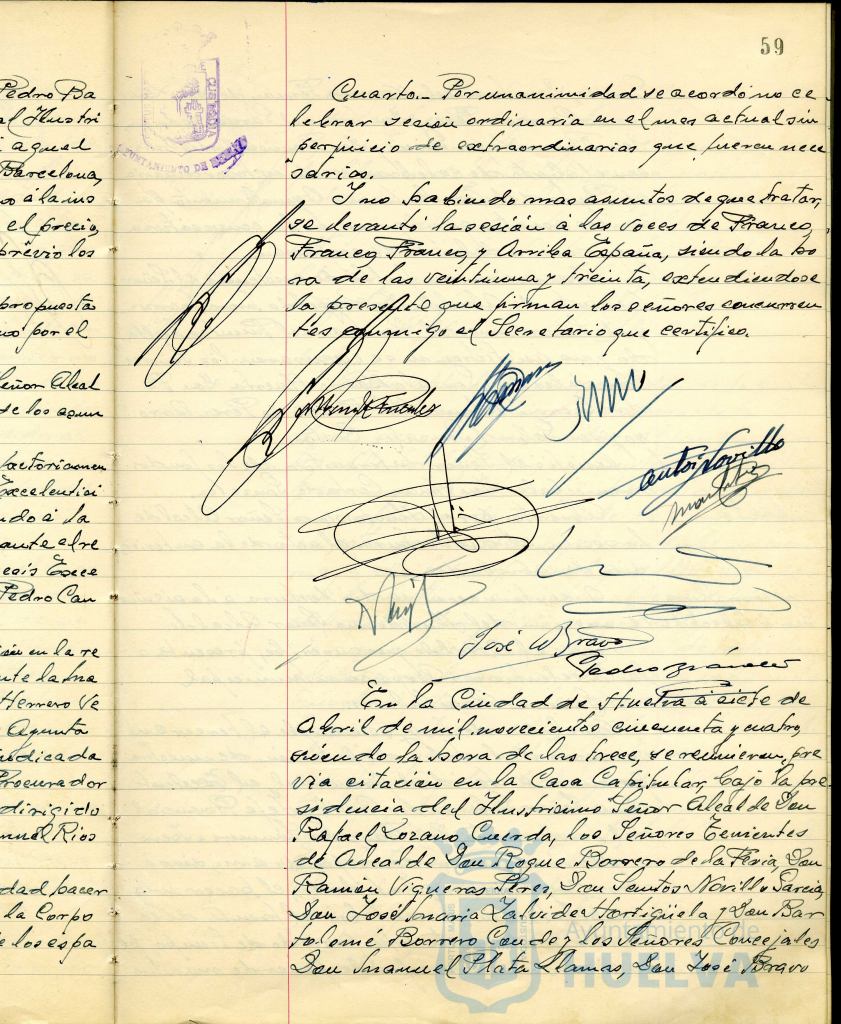 59
Pedro Ba
al Ilustri
aquel
Barcelona,
o á la ins
el precio,
prévio los
propuesta
no por el
señor Alcal
se los asun
Excelentísi
ndo á la
ante el re
Pedro Can
en la re
Herrero Ve
Agunta
ndicada
Procurador
dirigido
nuel Rios
dad hacer
la Corpo
e los espa
AYUNTAMIENTO DE HUELVA
Cuarto.- Por unanimidad se acordó no ce
lebrar sesión ordinaria en el mes actual sin
perjuicio de extraordinarias que fueren nece
sarias.
Y no habiendo mas asuntos de que tratar,
se levantó la sesión á las voces de Franco,
Franco, Franco, y Arriba España, siendo la ho
ra de las veintiuna y treinta, extendiendose
la presente que firman los señores concurren
tes conmigo el Secretario que certifico.
José W Bravo
En la Ciudad de Huelva á siete de
Abril de mil novecientos cincuenta y cuatro,
siendo la hora de las trece, se reunieron, pre
via citación en la Casa Capitular, bajo la pre
sidencia del Ilustrisimo Señor Alcalde Don
Rafael Lozano Cuerda, los Señores Tenientes
de Alcalde Don Roque Borrero de la Feria, Don
Ramón Vigueras Pérez, Don Santos Novillo Garcia,
Don José Maria Zalvide Hortigüela y Don Bar
tolomé Borrero Conde y los Señores Concejales
Don Manuel Plata Llamas, Don José Bravo
Ayuntamiento de
HUELVA